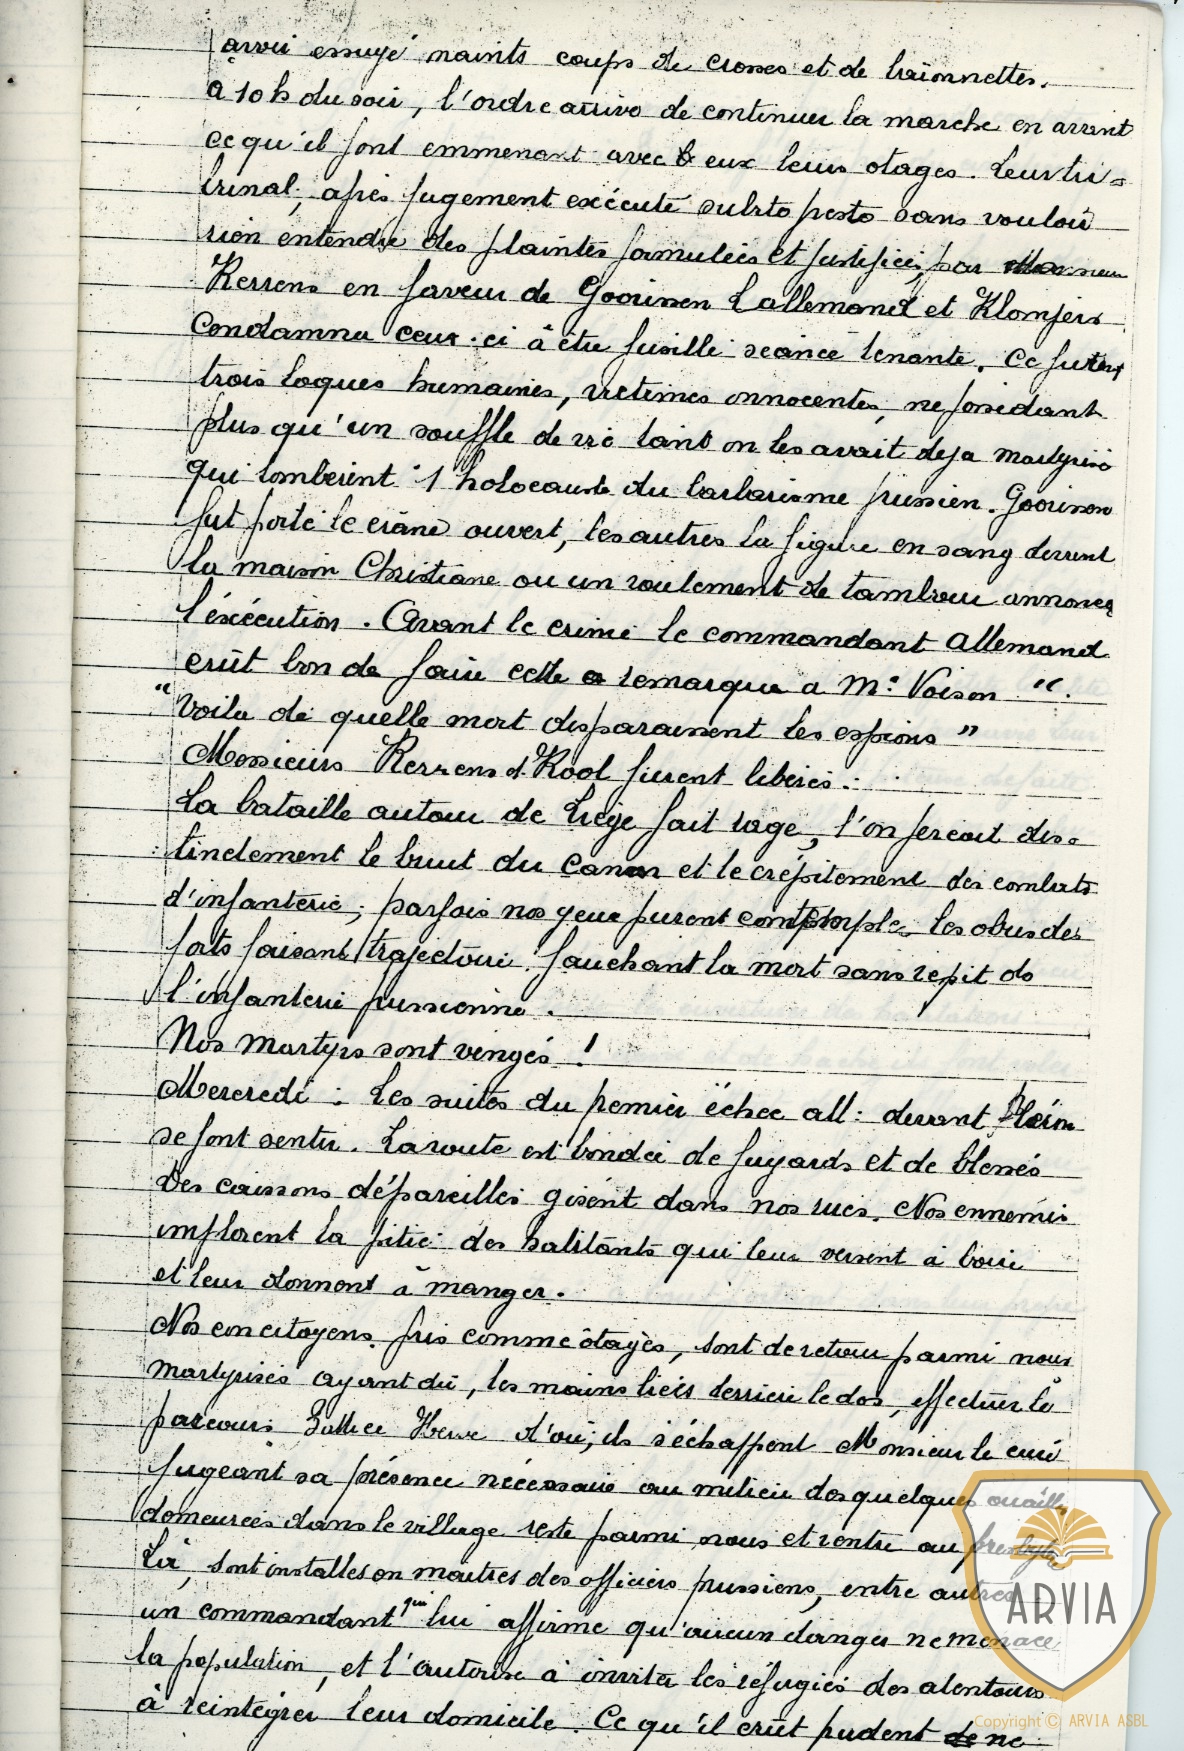 avoir essuyé maints coups de crosses et de baïonnettes.
a 10 h du soir, l'ordre arriva de continuer la marche en avant
ce qu'il font emmenant avec eux leurs otages. Leur tri=
bunal, après jugement exécuté subito presto sans vouloir
rien entendre des plaintes formulées et justifiées, par Monsieur
Kerrens en faveur de Goorissen Lallemand et Klompers
Condamna ceux-ci à être fusillé séance tenante. Ce furent
trois loques humaines, victimes innocentes, ne possédant
plus qu'un souffle de vie tant on les avait deja martyrisé
qui tombèrent à l'holocauste du barbarisme prussien. Goorissen
fut porté le crâne ouvert, les autres la figure en sang devant
la maison Christiane ou un roulement de tambour annonça
l'éxécution. Avant le crime le commandant allemand
crût bon de faire cette remarque a Mr Voison ".
"Voila de quelle mort disparaissent les espions"
Messieurs Kerrens et Kool furent libérés.
La bataille autour de Liège fait rage, l'on percoit dis=
tinctement le bruit du canon et le crépitement des combats
d'infanterie; parfois nos yeux purent contempler les obus des
forts faisant trajectoire fauchant la mort sans répit de
l'infanterie prussienne.
Nos martyrs sont vengés !
Mercredi : Les suites du premier échec all: devant Fléron
se font sentir. La route est bondée de fuyards et de blessés
Des caissons dépareillés gisent dans nos rues. Nos ennemis
implorent la pitié des habitants qui leur versent à boire
et leur donnent à manger.
Nos concitoyens pris comme ôtages, sont de retour parmi nous
martyrisés ayant dû, les mains liées derrière le dos, effectuer le
parcours Battice Herve d'où, ils s'échappent Monsieur le curé
jugeant sa présence nécessaire au milieu des quelques ouailles
demeurées dans le village reste parmi nous et rentre au presbytère
Là, sont installés en maîtres des officiers prussiens, entre autres
un commandant qui lui affirme qu'aucun danger ne menace
la population, et l'autorise à inviter les réfugiés des alentours
à reintégrer leur domicile. Ce qu'il crût prudent de ne
ARVIA
Copyright © ARVIA ASBL